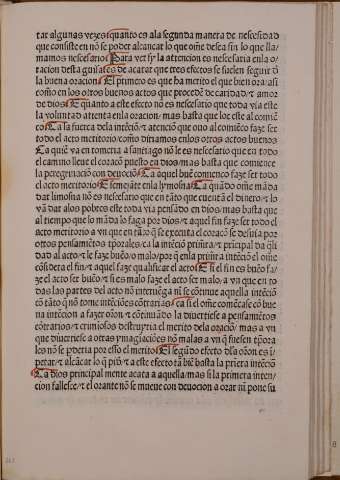 tar algunas vezes: quanto es ala segunda manera de nescesidad
que consiste en nõ se poder alcançar lo que oñe desea sin lo que lla/
mamos nescesario: Para ver sy la attencion es nescesaria enla o/
racion desta guisa: es de acatar que tres efectos se suelen seguir d̃
la buena oracion: El primero es que ha merito el que bien ora/ asi
como en los otros buenos actos que procedẽ de caridad/ ⁊ amor
de dios: E quanto a este efecto nõ es nescesario que toda vía este
la voluntad attenta enla oracion/ mas basta que lo este al comiẽ
ço: Ca la fuerça dela intẽcio ⁊ atenciõ que ouo al comiẽço faze ser
todo el acto meritorio/ como diriamos enlos otros actos buenos
Ca quiẽ va en romeria a santiago nõ le es nescesario que en todo
el camino lieue el coraçõ puesto en dios/ mas basta que comience
la peregrinaciõ con deuociõ: Ca aquel buẽ comienço faze ser todo
el acto meritorio: E semejãte enla lymosna: Ca quãdo oñe mãda
dar limosna nõ es nescesario que en tãto que cuentã el dinero/ ⁊ lo
vã dar alos pobres este toda vía pensãdo en dios/ mas basta que
al tiempo que lo mãda lo faga por dios/ ⁊ aquel fin faze ser todo el
acto meritorio a vn que en tãto q̃ se executa el coraçõ se desuia por
otros pensamiẽtos tẽporales/ ca la intẽciõ primera/ ⁊ principal da q̃li
dad al acto/ ⁊ le faze buẽo/ o malo/ por q̃ enla primera intẽciõ el oñe
cõsidera el fin/ ⁊ aquel faze qualificar el acto: E si el fin es buẽo fa/
ze el acto ser buẽo/ ⁊ si es malo faze el acto ser malo/ a vn que en to
das las partes del acto nõ interuẽga ni se cõtinue aquella intẽciõ
cõ tãto q̃ nõ tome intẽciões cõtrarias: ca si el oñe comẽçase cõ bue
na intencion a fazer oraciõ/ ⁊ cõtinuãdo la diuertiese a pensamiẽtos
cõtrarios/ ⁊ criminosos destruyria el merito dela oraciõ/ mas a vn
que diuertiese a otras ymaginaciões nõ malas a vn q̃ fuesen tẽpora
les nõ se pderia por esso el merito: El segũdo efecto dla oraciõ es í
petrar/ ⁊ alcãçar lo q̃ pid̃/ ⁊ a este efecto tã biẽ basta la primera intẽciõ
Ca dios principal mente acata a aquella/ mas si la primera inten/
cion fallesce/ ⁊ el orante nõ se mueue con deuocion a orar ni pone su